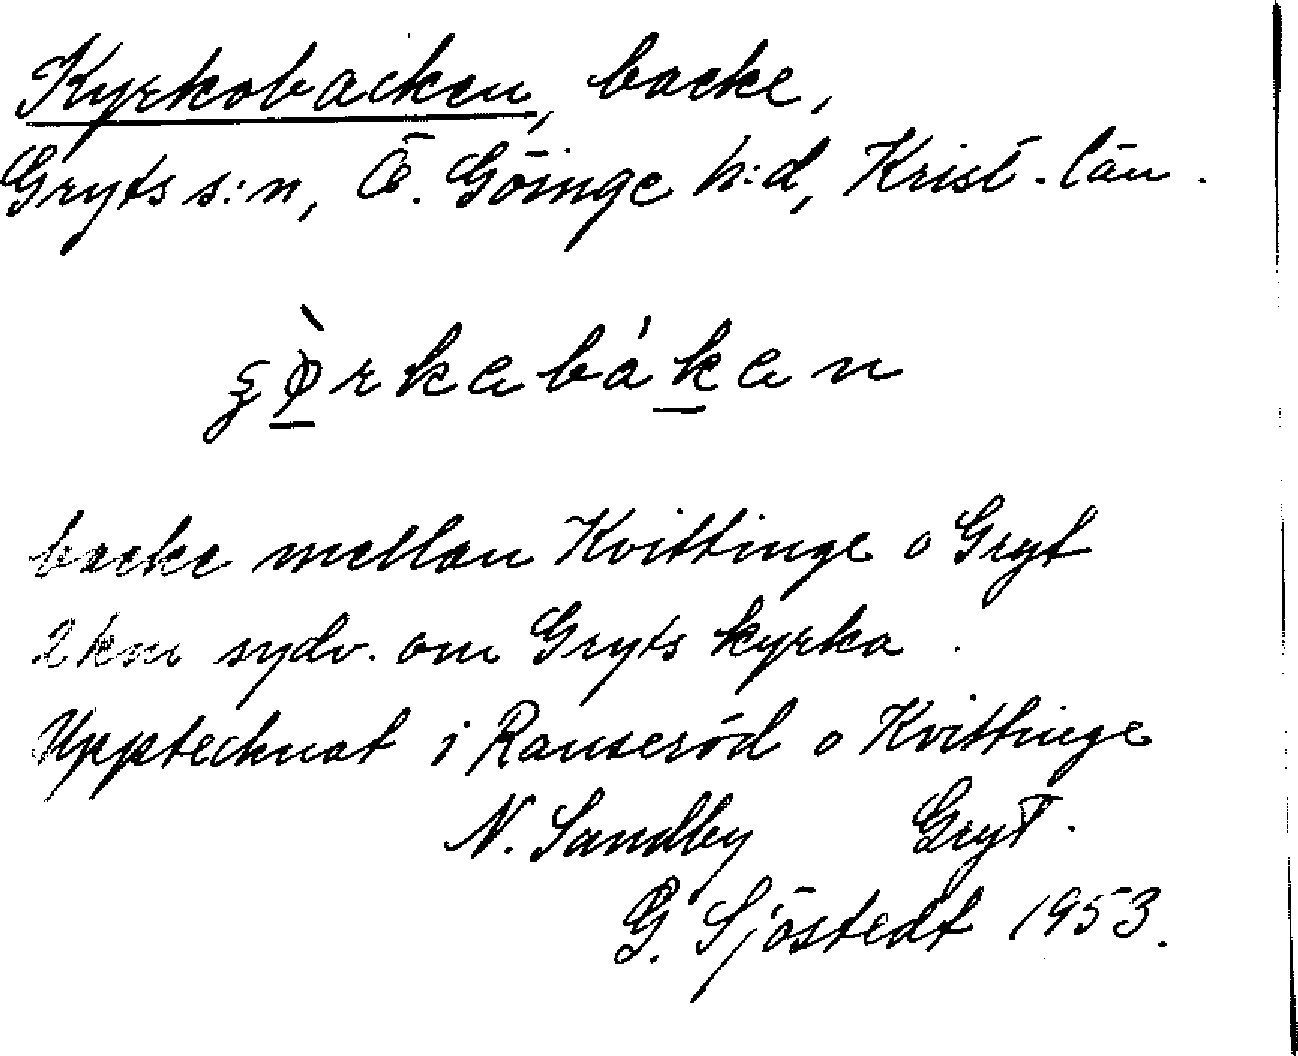 Kyrkobacken, backe,
Gryts s:n, Ö. Göinge h:d, Krist. län.
backe mellan Kvittinge o Gryt
2 km sydv. om Gryts kyrka.
Upptecknat i Ranseröd o Kvittinge
N. Sandby Gryt.
G. Sjöstedt 1953.